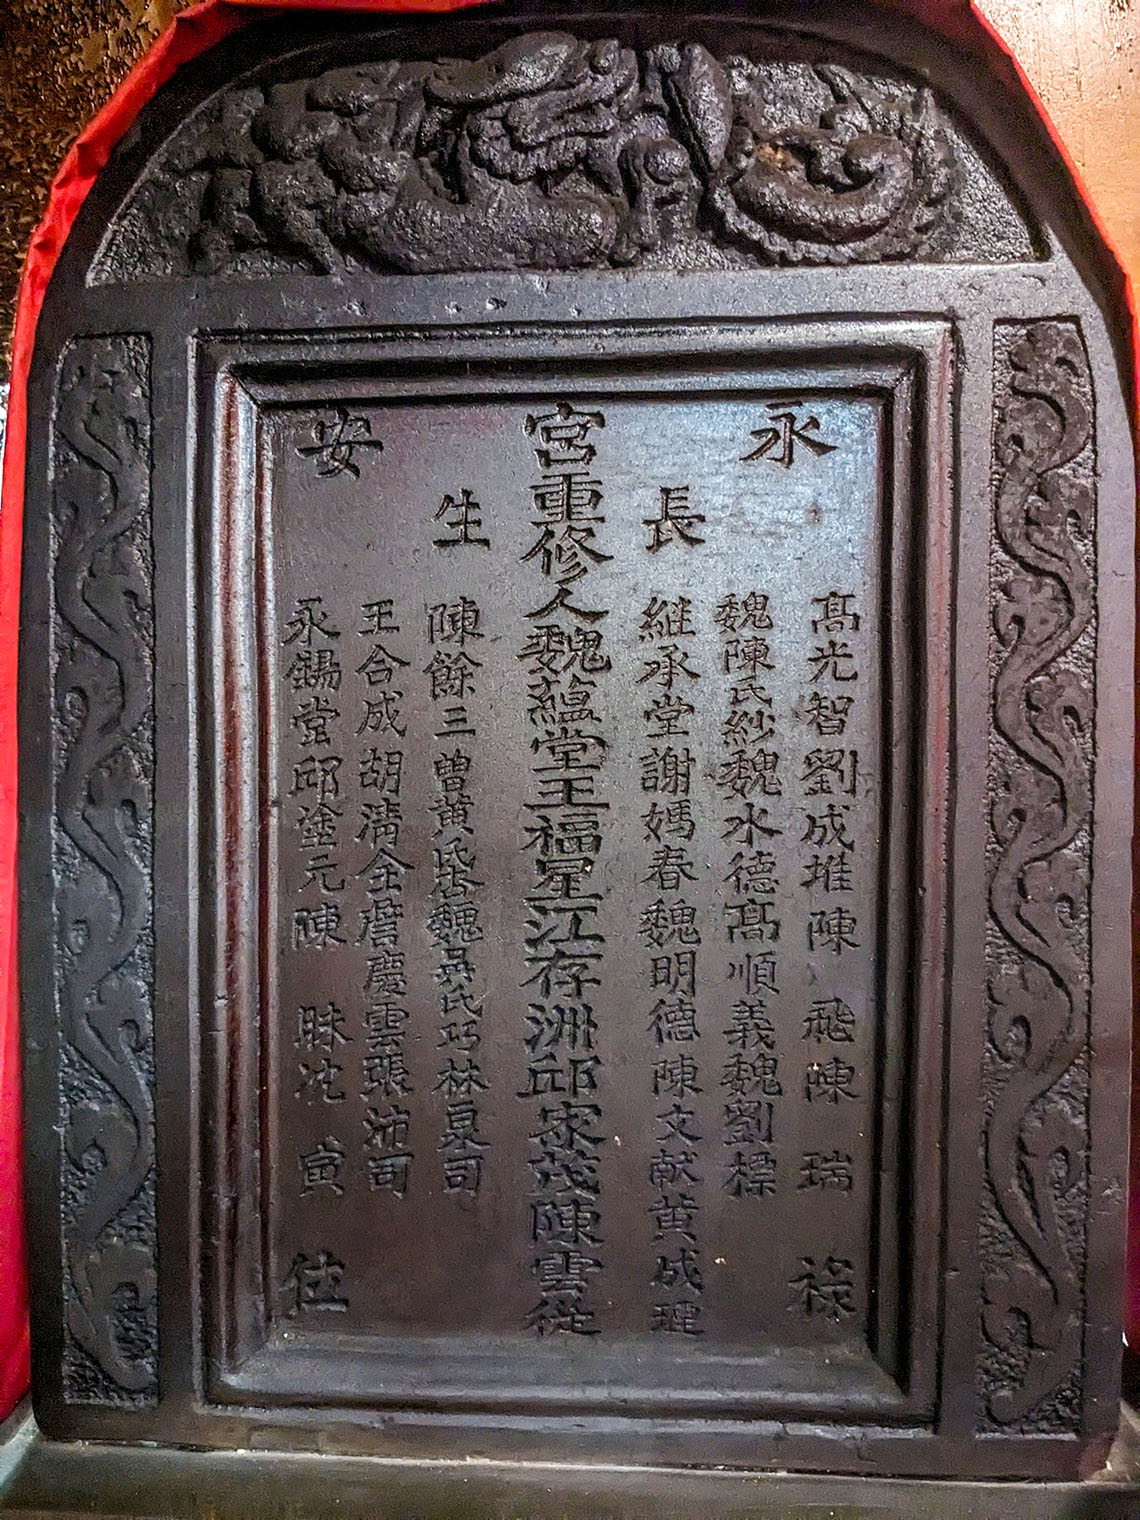 永
高光智劉成堆陳飛陳瑞
祿
魏陳氏紗魏水德高順義魏劉標
長
継承堂謝媽春魏明德陳文献黄成璉
宮重修人魏蘊堂王福星江存洲邱家茂陳雲從
生
陳餘三曾黄昏魏吳氏巧林泉司
王合成胡清全詹慶雲張沛司
安
永錫堂邱塗元陳
寅
位